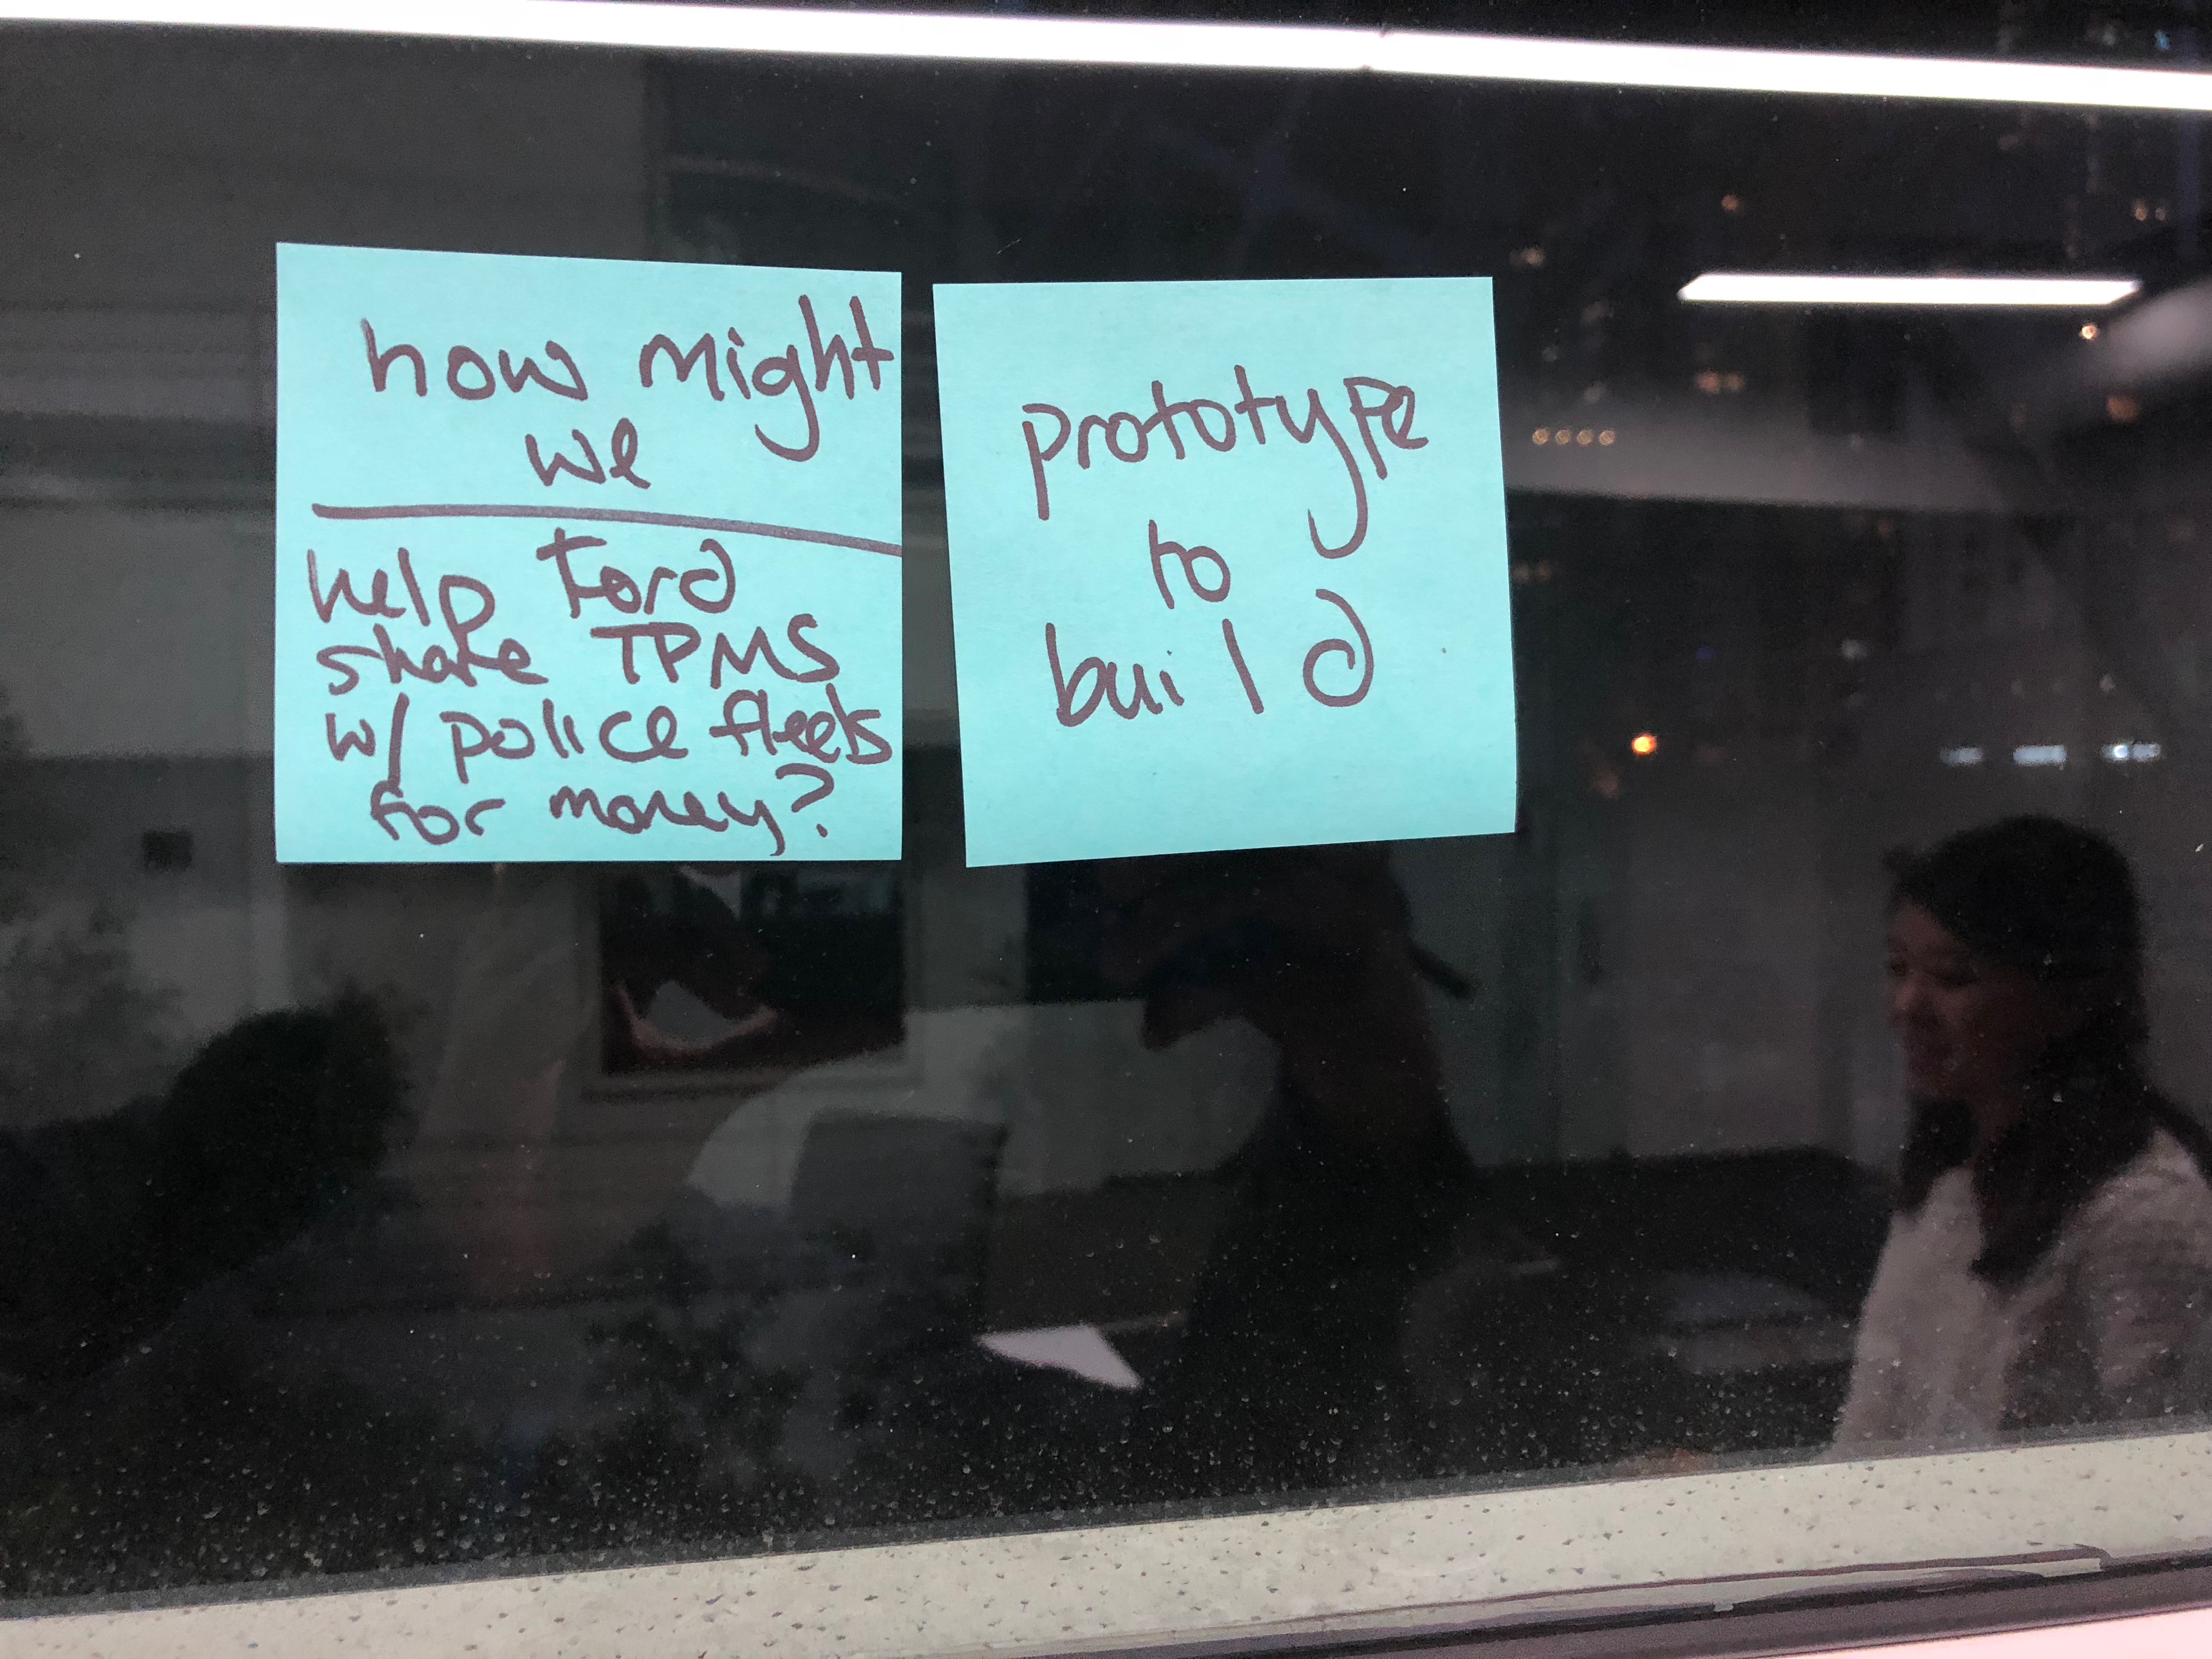 how might
we
help Ford
share TPMS
w/ police fleets
for money?
prototype
to
build